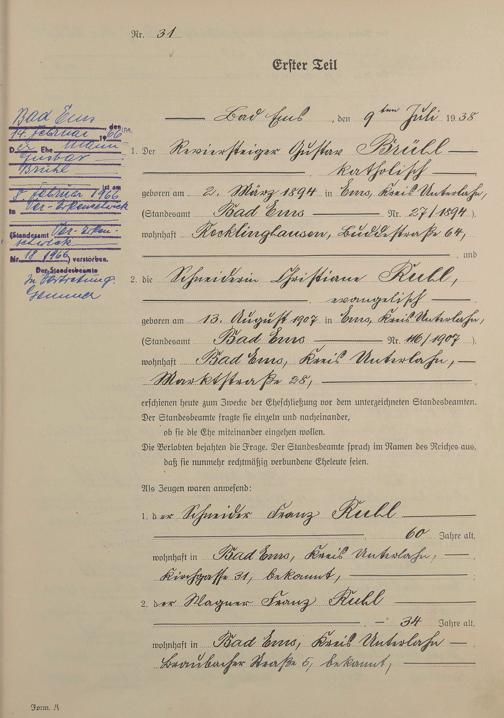 Nr. 31
Erster Teil
Bad Ems, den 9ten Juli 1938
1. Der Reviersteiger Gustav Brühl
katholisch
geboren am 2. März 1894 in Ems, Kreis Unterlahn,
(Standesamt Bad Ems Nr. 27/1894).
wohnhaft Recklinghausen, Buddestraße 64,
und
2. die Schneiderin Christiane Kuhl,
evangelisch
geboren am 13. August 1907 in Ems, Kreis Unterlahn,
(Standesamt Bad Ems Nr. 116/1907).
wohnhaft Bad Ems, Kreis Unterlahn,
Marktstraße 28,
erschienen heute zum Zwecke der Eheschließung vor dem unterzeichneten Standesbeamten.
Der Standesbeamte fragte sie einzeln und nacheinander,
ob sie die Ehe miteinander eingehen wollen.
Die Verlobten bejahten die Frage. Der Standesbeamte sprach im Namen des Reiches aus,
daß sie nunmehr rechtmäßig verbundene Eheleute seien.
Als Zeugen waren anwesend:
1. der Schneider Franz Kuhl
60 Jahre alt,
wohnhaft in Bad Ems, Kreis Unterlahn,
Kirchgasse 31, bekannt,
2. der Wagner Franz Kuhl
34 Jahre alt,
wohnhaft in Bad Ems, Kreis Unterlahn
Braubacher Straße 5, bekannt,
Form. A
Bad Ems den
14. Februar 1966
Der Ehemann
Gustav
Brühl
ist am
8. Februar 1966
in Oer-Erkenschwick
(Standesamt Oer-Erken-
schwick
Nr. 18/1966) verstorben.
Der Standesbeamte
In Vertretung: